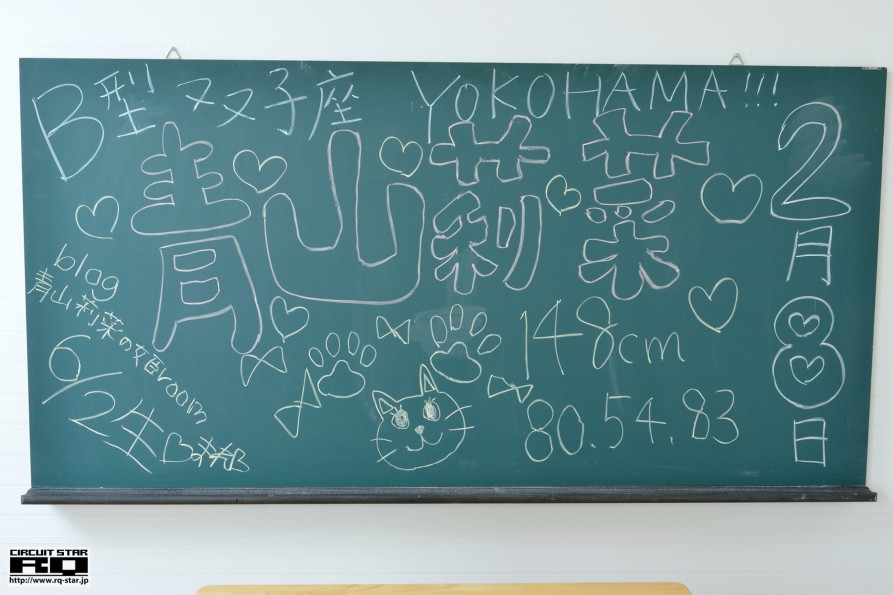 B型 双子座 YOKOHAMA!!!
青山莉菜
2月8日
blog
青山莉菜の女百room
6/2生
148cm
80.54.83
CIRCUIT STAR
RQ
http://www.rq-star.jp